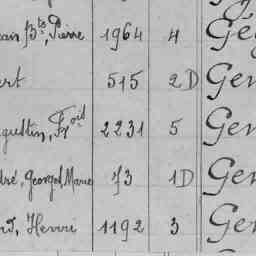 Pierre 1964 4 Gé
ert 515 2D Gen
gustin, Fçois 2231 5 Gen
dré, Georges Marie 73 1D Gen
rd, Henri 1192 3 Gen